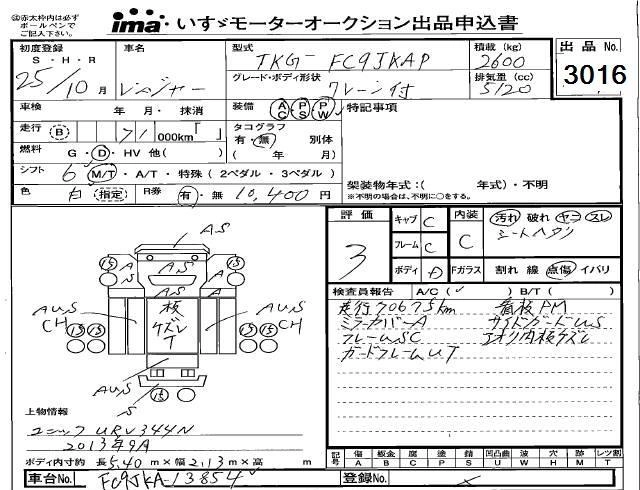 ㊟赤太枠内は必ず
ボールペンで
ご記入下さい。
ima・いすゞモーターオークション出品申込書
初度登録
S・H・R
25/10月
車名
レンジャー
型式
TKG-FC9JKAP
グレード・ボディ形状
クレーン付
積載(kg)
2600
排気量(cc)
5120
出品No.
3016
車検 年・月・抹消
装備 AC PS PW
特記事項
走行 B 71 000km「 」
タコグラフ
有・無 別体
( 年 月)
燃料 G・D・HV 他( )
シフト 6 M/T・A/T・特殊(2ペダル・3ペダル)
色 白 指定 R券 有・無 10,400円
架装物年式:( 年式)・不明
※不明の場合は、不明に○をする。
評価
3
キャブ C
フレーム C
ボディ D
内装
C
Fガラス
汚れ 破れ ヤコ スレ
シートヘタリ
割れ 線 点傷 イバリ
検査員報告 A/C(✓) B/T( )
走行70675km 看板PM
ミラーカバーA サイドガードUS
フレームSC エオリ内板ケズレ
ガードフレームUT
AS
15 15
A A
S AS S
AS
AUS
CH
板
ケズレ
T
AUS
CH
15 15 15 15
AUS
S
15
上物情報
ユニック URV344N
2013年9月
ボディ内寸約 長5.40m×幅2.13m×高 m
記号 傷A 板金B 腐C 塗P 錆S 凹凸曲U 波W 穴H 跡M レツ割T
車台No. FC9JKA-13854
登録No.